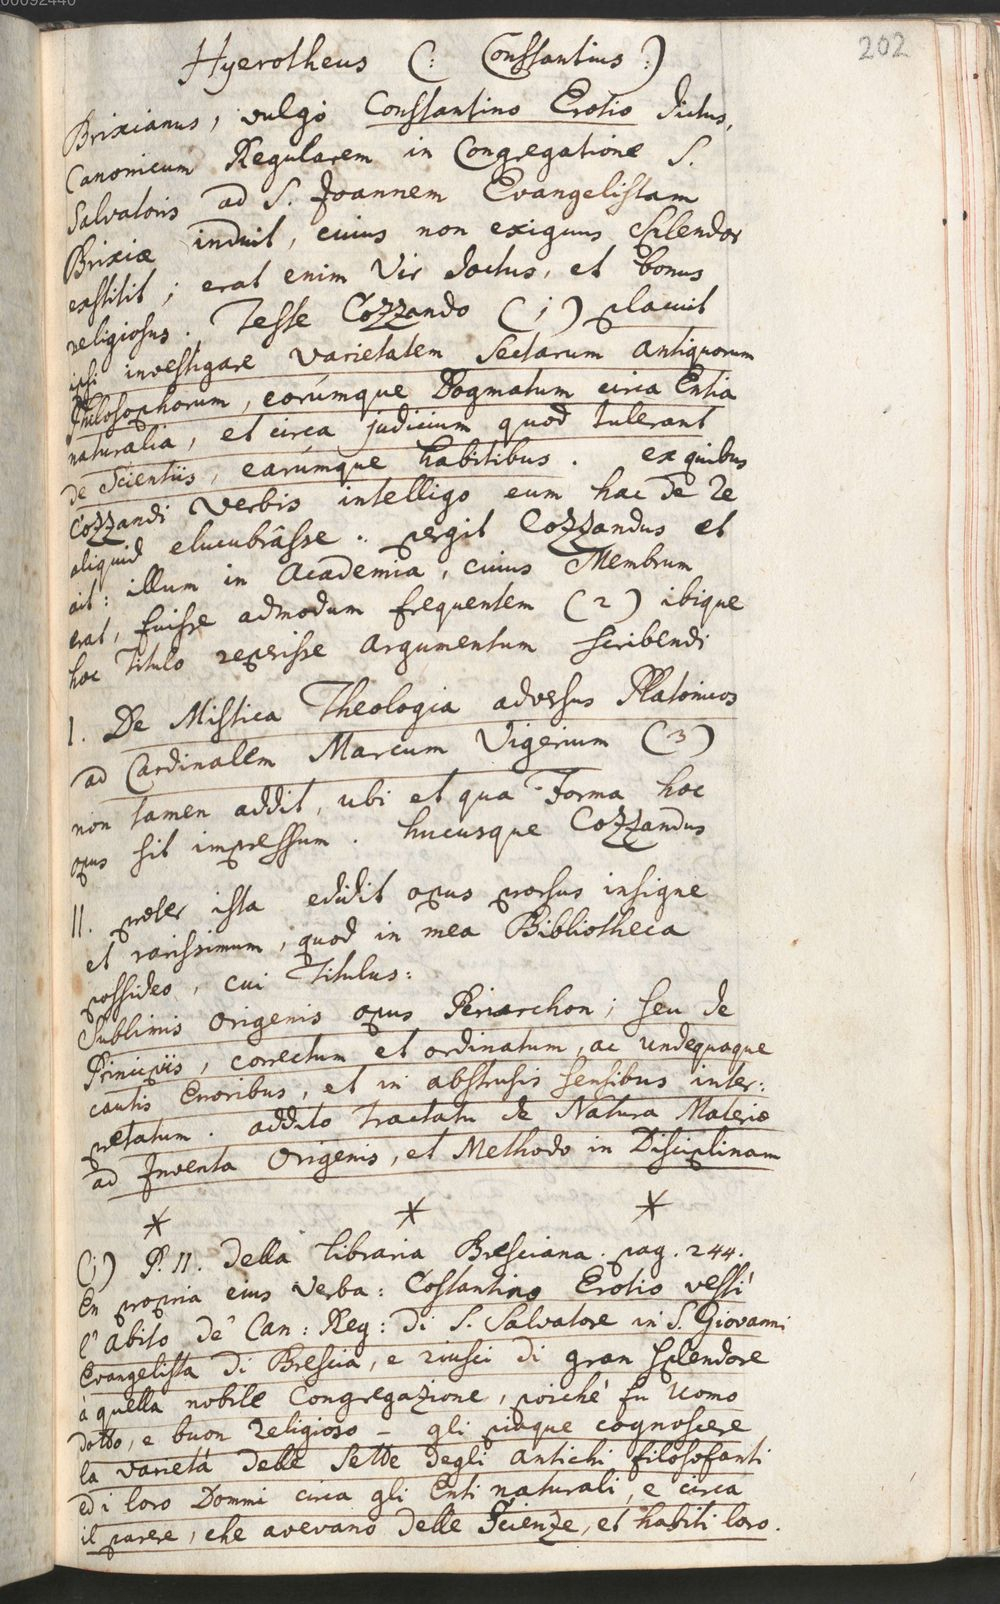 202
Hyerotheus (: Constantius :)
Brixianus, vulgò Constantino Erotio dictus,
Canonicum Regularem in Congregatione S.
Salvatoris ad S. Joannem Evangelistam
Brixiæ induit, cuius non exiguus Splendor
exstitit; erat enim Vir doctus, et bonus
religiosus. Teste Cozzando (1) placuit
ipsi investigare varietatem Sectarum antiquorum
Philosophorum, eorúmque Dogmatum circa Entia
naturalia, et circa judicium quod tulerant
de Scientiis, earúmque habitibus. ex quibus
Cozzandi verbis intelligo eum hac de re
aliquid elucubrâsse. pergit Cozzandus et
ait: illum in Academia, cuius Membrum
erat, fuisse admodum frequentem (2) ibique
hoc Titulo reperisse argumentum scribendi
I. De Mistica Theologia adversus Platonicos
ad Cardinalem Marcum Vigerium (3)
non tamen addit, ubi et qua Forma hoc
opus sit impressum. hucusque Cozzandus
II. præter ista edidit opus prorsus insigne
et rarissimum, quod in mea Bibliotheca
possideo, cui Titulus:
Sublimis Origenis opus Periarchon; seu de
Principiis, correctum et ordinatum, ac undequaque
cautis Erroribus, et in abstrusis sensibus inter:
pretatum. addito tractatu de Natura Materiæ
ad Inventa Origenis, et Methodo in Disciplinam
* * *
(1) P. II. della libraria Bresciana. pag. 244.
En propria eius verba: Costantino Erotio vestì
l'abito de' Can: Reg: di S. Salvatore in S. Giovanni
Evangelista di Brescia, e riusci di gran splendore
à quella nobile Congregazione, poiché fu Uomo
dotto, e buon religioso - gli piaque cognoscere
la varietà delle Sette degli antichi filosofanti
ed i loro Dommi circa gli Enti naturali, e circa
il parere, che avevano delle Scienze, et habiti loro.